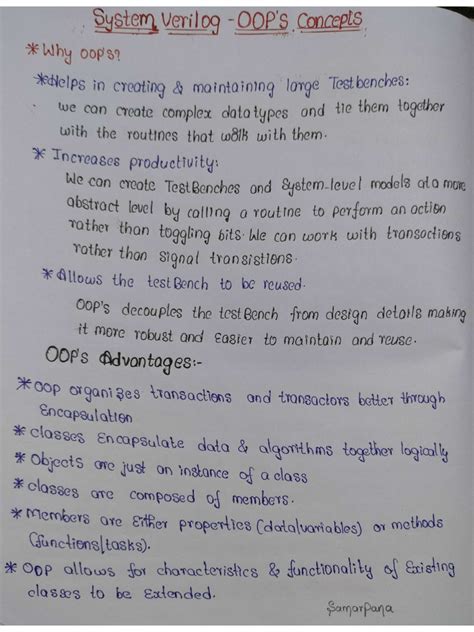 System Verilog - OOP'S Concepts
* Why OOP's?
* Helps in creating & maintaining large Testbenches:
we can create complex datatypes and tie them together
with the routines that work with them.
* Increases productivity:
We can create TestBenches and System-level models at a more
abstract level by calling a routine to perform an action
rather than toggling bits. We can work with transactions
rather than signal transistions.
* Allows the testBench to be reused.
OOP's decouples the testBench from design details making
it more robust and Easier to maintain and reuse.
OOP's Advantages:-
* OOP organizes transactions and transactors better through
Encapsulation
* classes Encapsulate data & algorithms together logically
* Objects are just an instance of a class
* classes are composed of members.
* Members are Either properties (data/variables) or methods
(functions/tasks).
* OOP allows for characteristics & functionality of Existing
classes to be Extended.
Samarpana